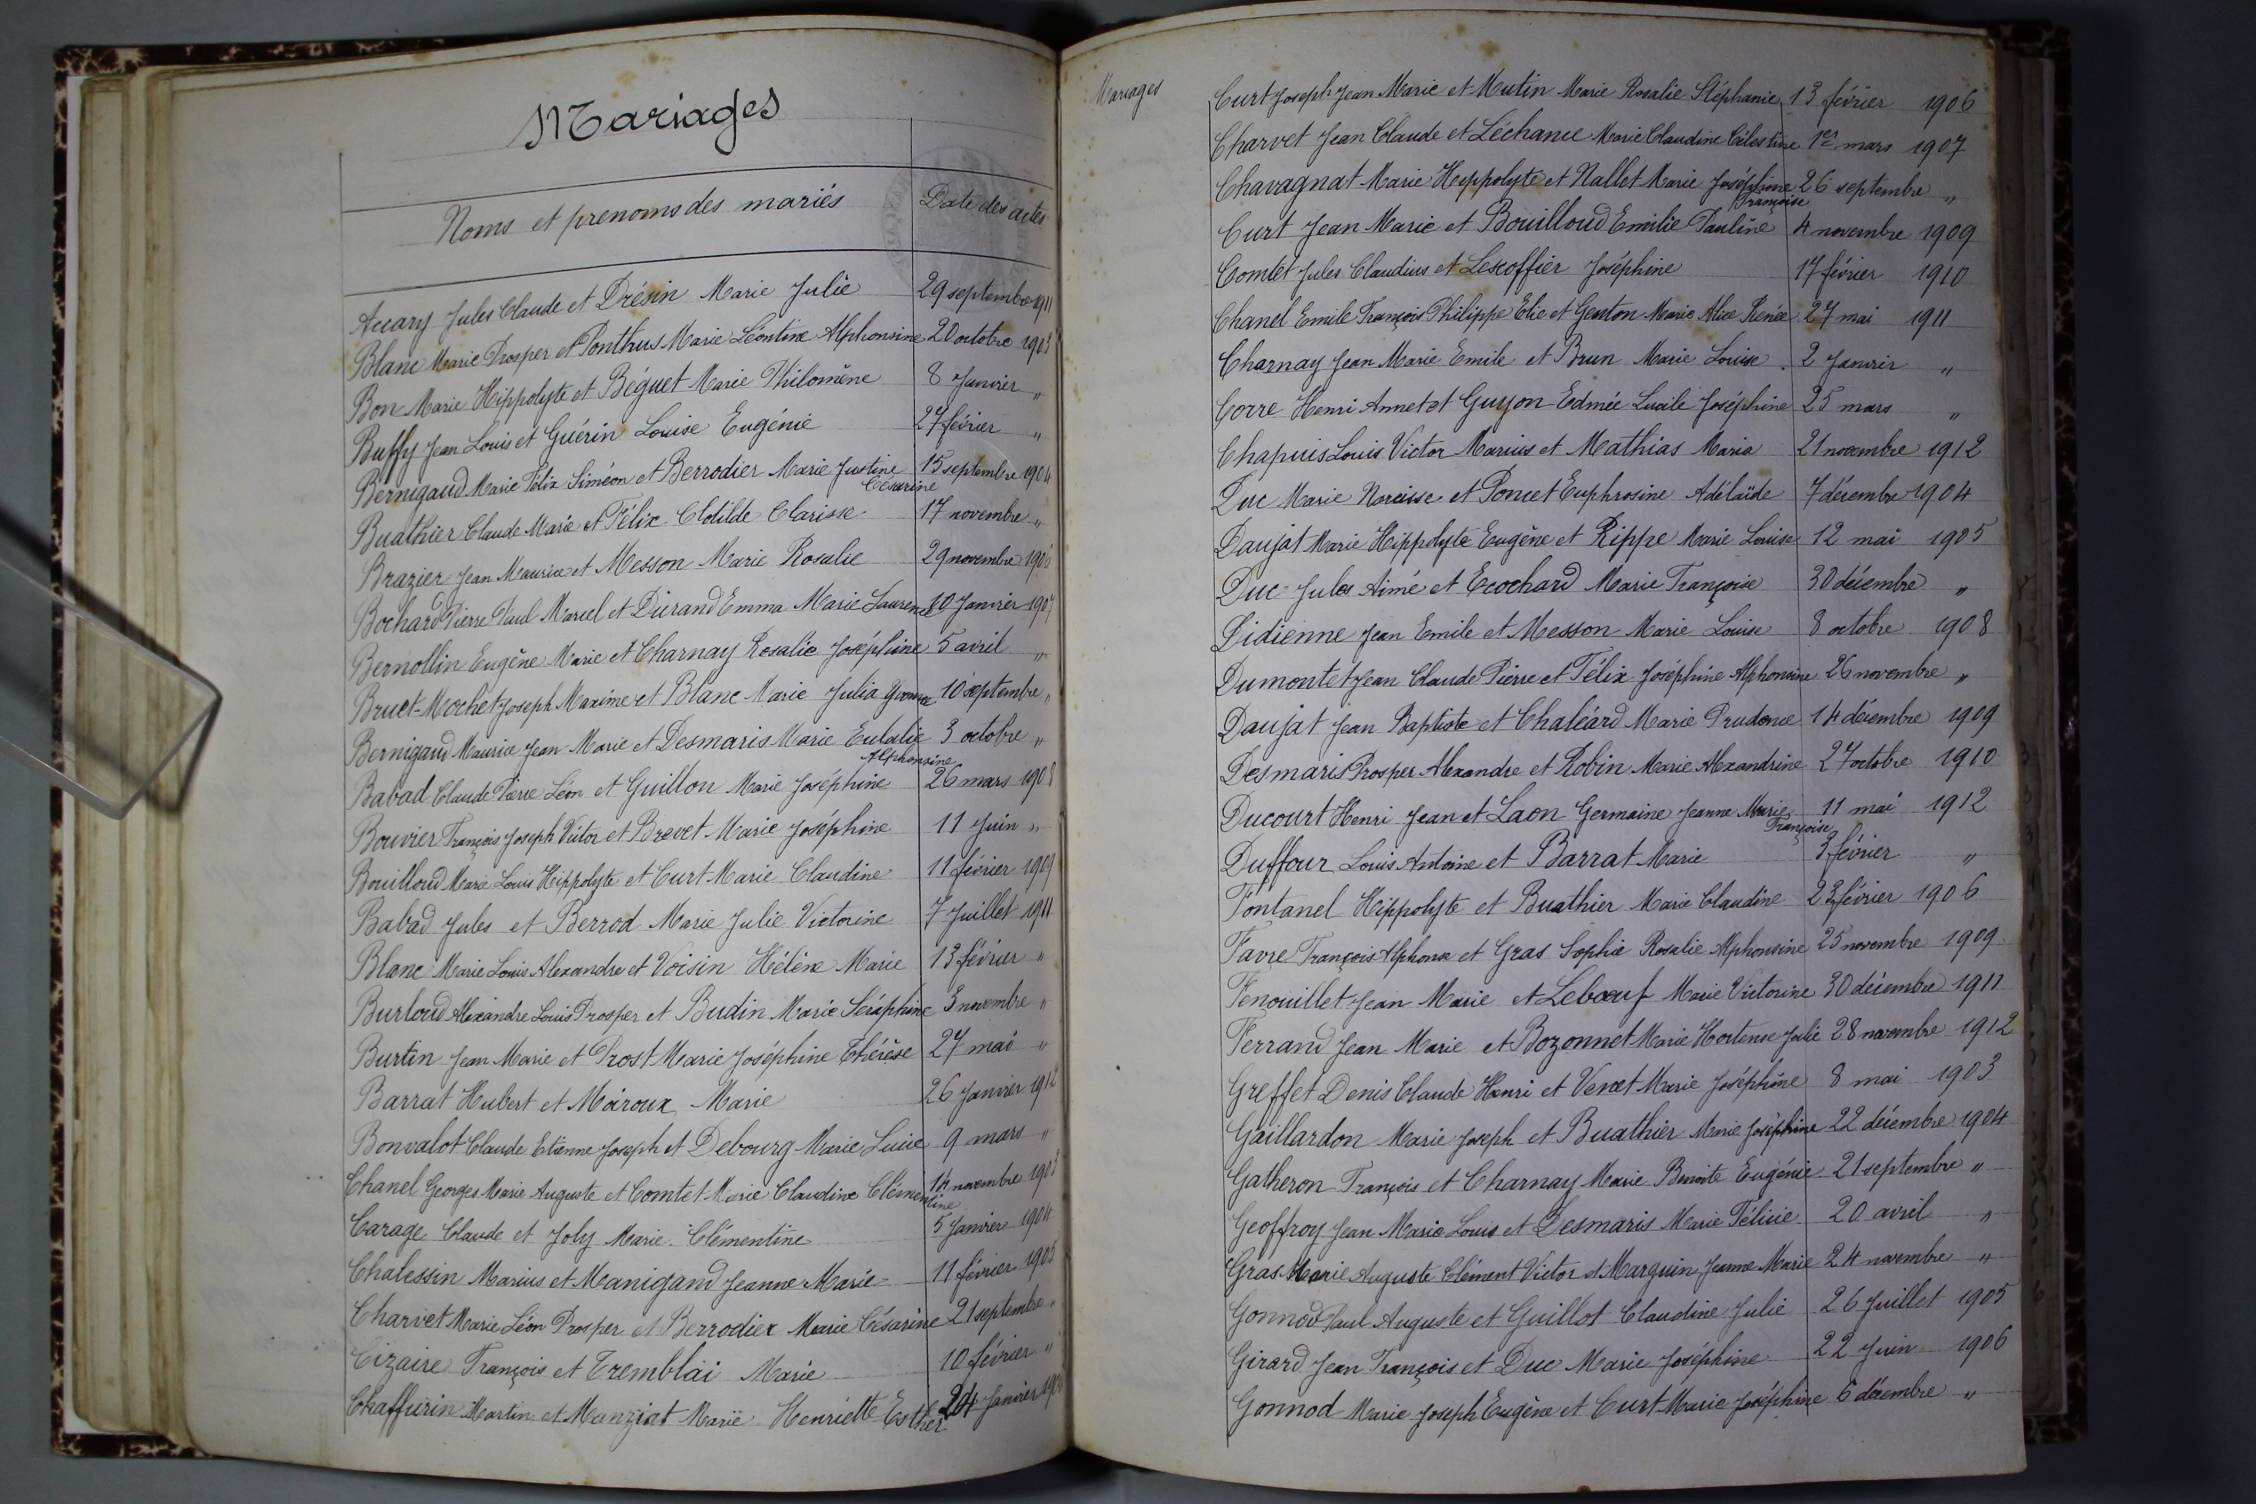 Mariages
Noms et prenoms des mariés Date des actes
Accary Jules Claude et Drésin Marie Julie 29 septembre 1911
Blanc Marie Prosper et Ponthus Marie Léontine Alphonsine 20 octobre 1903
Bon Marie Hippolyte et Béguet Marie Philomène 8 Janvier "
Buffy Jean Louis et Guérin Louise Eugénie 27 février "
Bernigaud Marie Félix Siméon et Berrodier Marie Justine Césarine 15 septembre 1904
Buathier Claude Marie et Félix Clotilde Clarisse 17 novembre "
Brazier Jean Maurice et Messon Marie Rosalie 29 novembre 1906
Bochard Pierre Paul Marcel et Durand Emma Marie Laurence 10 Janvier 1907
Bernollin Eugène Marie et Charnay Rosalie Joséphine 5 avril "
Bruet-Mochet Joseph Maxime et Blanc Marie Julia Yvonne 10 septembre "
Bernigaud Maurice Jean Marie et Desmaris Marie Eulalie Alphonsine 3 octobre "
Babad Claude Pierre Léon et Guillon Marie Joséphine 26 mars 1908
Bouvier François Joseph Victor et Brevet Marie Joséphine 11 Juin "
Bouilloud Marie Louis Hippolyte et Curt Marie Claudine 11 février 1909
Babad Jules et Berrod Marie Julie Victorine 7 Juillet 1911
Blanc Marie Louis Alexandre et Voisin Hélène Marie 13 février "
Burloud Alexandre Louis Prosper et Budin Marie Séraphine 3 novembre "
Burtin Jean Marie et Prost Marie Joséphine Thérèse 27 mai "
Barrat Hubert et Mároux Marie 26 Janvier 1912
Bonvalot Claude Etienne Joseph et Debourg Marie Lucie 9 mars "
Chanel Georges Marie Auguste et Comtet Marie Claudine Clémentine 14 novembre 1903
Carage Claude et Joly Marie Clémentine 5 Janvier 1904
Chalessin Marius et Manigand Jeanne Marie 11 février 1905
Charvet Marie Léon Prosper et Berrodier Marie Césarine 21 septembre "
Cizaire François et Tremblai Marie 10 février "
Chaffurin Martin et Manziat Marie Henriette Esther 24 Janvier
Mariages
Curt Joseph Jean Marie et Mutin Marie Rosalie Stéphanie 13 février 1906
Charvet Jean Claude et Léchanie Marie Claudine Célestine 1er mars 1907
Chavagnat Marie Hyppolyte et Nallet Marie Joséphine Françoise 26 septembre "
Curt Jean Marie et Bouilloud Emilie Pauline 4 novembre 1909
Comtet Jules Claudius et Lescoffier Joséphine 17 février 1910
Chanel Emile François Philippe Elie et Genton Marie Alice Renée 27 mai 1911
Charnay Jean Marie Emile et Brun Marie Louise 2 Janvier "
Corre Henri Annet et Guyon Edmée Lucile Joséphine 25 mars "
Chapuis Louis Victor Marius et Mathias Maria 21 novembre 1912
Duc Marie Narcisse et Poncet Euphrosine Adélaïde 7 décembre 1904
Daujat Marie Hippolyte Eugène et Rippe Marie Louise 12 mai 1905
Duc Jules Aimé et Ecochard Marie Françoise 30 décembre "
Didienne Jean Emile et Messon Marie Louise 8 octobre 1908
Dumontet Jean Claude Pierre et Félix Joséphine Alphonsine 26 novembre "
Daujat Jean Baptiste et Chaléard Marie Prudence 14 décembre 1909
Desmaris Prosper Alexandre et Robin Marie Alexandrine 27 octobre 1910
Ducourt Henri Jean et Laon Germaine Jeanne Marie Françoise 11 mai 1912
Duffour Louis Antoine et Barrat Marie 3 février "
Fontanel Hippolyte et Buathier Marie Claudine 23 février 1906
Favre François Alphonse et Gras Sophie Rosalie Alphonsine 25 novembre 1909
Fenouillet Jean Marie et Lebœuf Marie Victorine 30 décembre 1911
Ferrand Jean Marie et Bozonnet Marie Hortense Julie 28 novembre 1912
Greffet Denis Claude Henri et Venet Marie Joséphine 8 mai 1903
Gaillardon Marie Joseph et Buathier Marie Joséphine 22 décembre 1904
Gatheron François et Charnay Marie Benoite Eugénie 21 septembre "
Geoffroy Jean Marie Louis et Desmaris Marie Félicie 20 avril "
Gras Marie Auguste Clément Victor et Marguin Jeanne Marie 24 novembre "
Gonnod Paul Auguste et Guillot Claudine Julie 26 Juillet 1905
Girard Jean François et Duc Marie Joséphine 22 Juin 1906
Gonnod Marie Joseph Eugène et Curt Marie Joséphine 6 décembre "